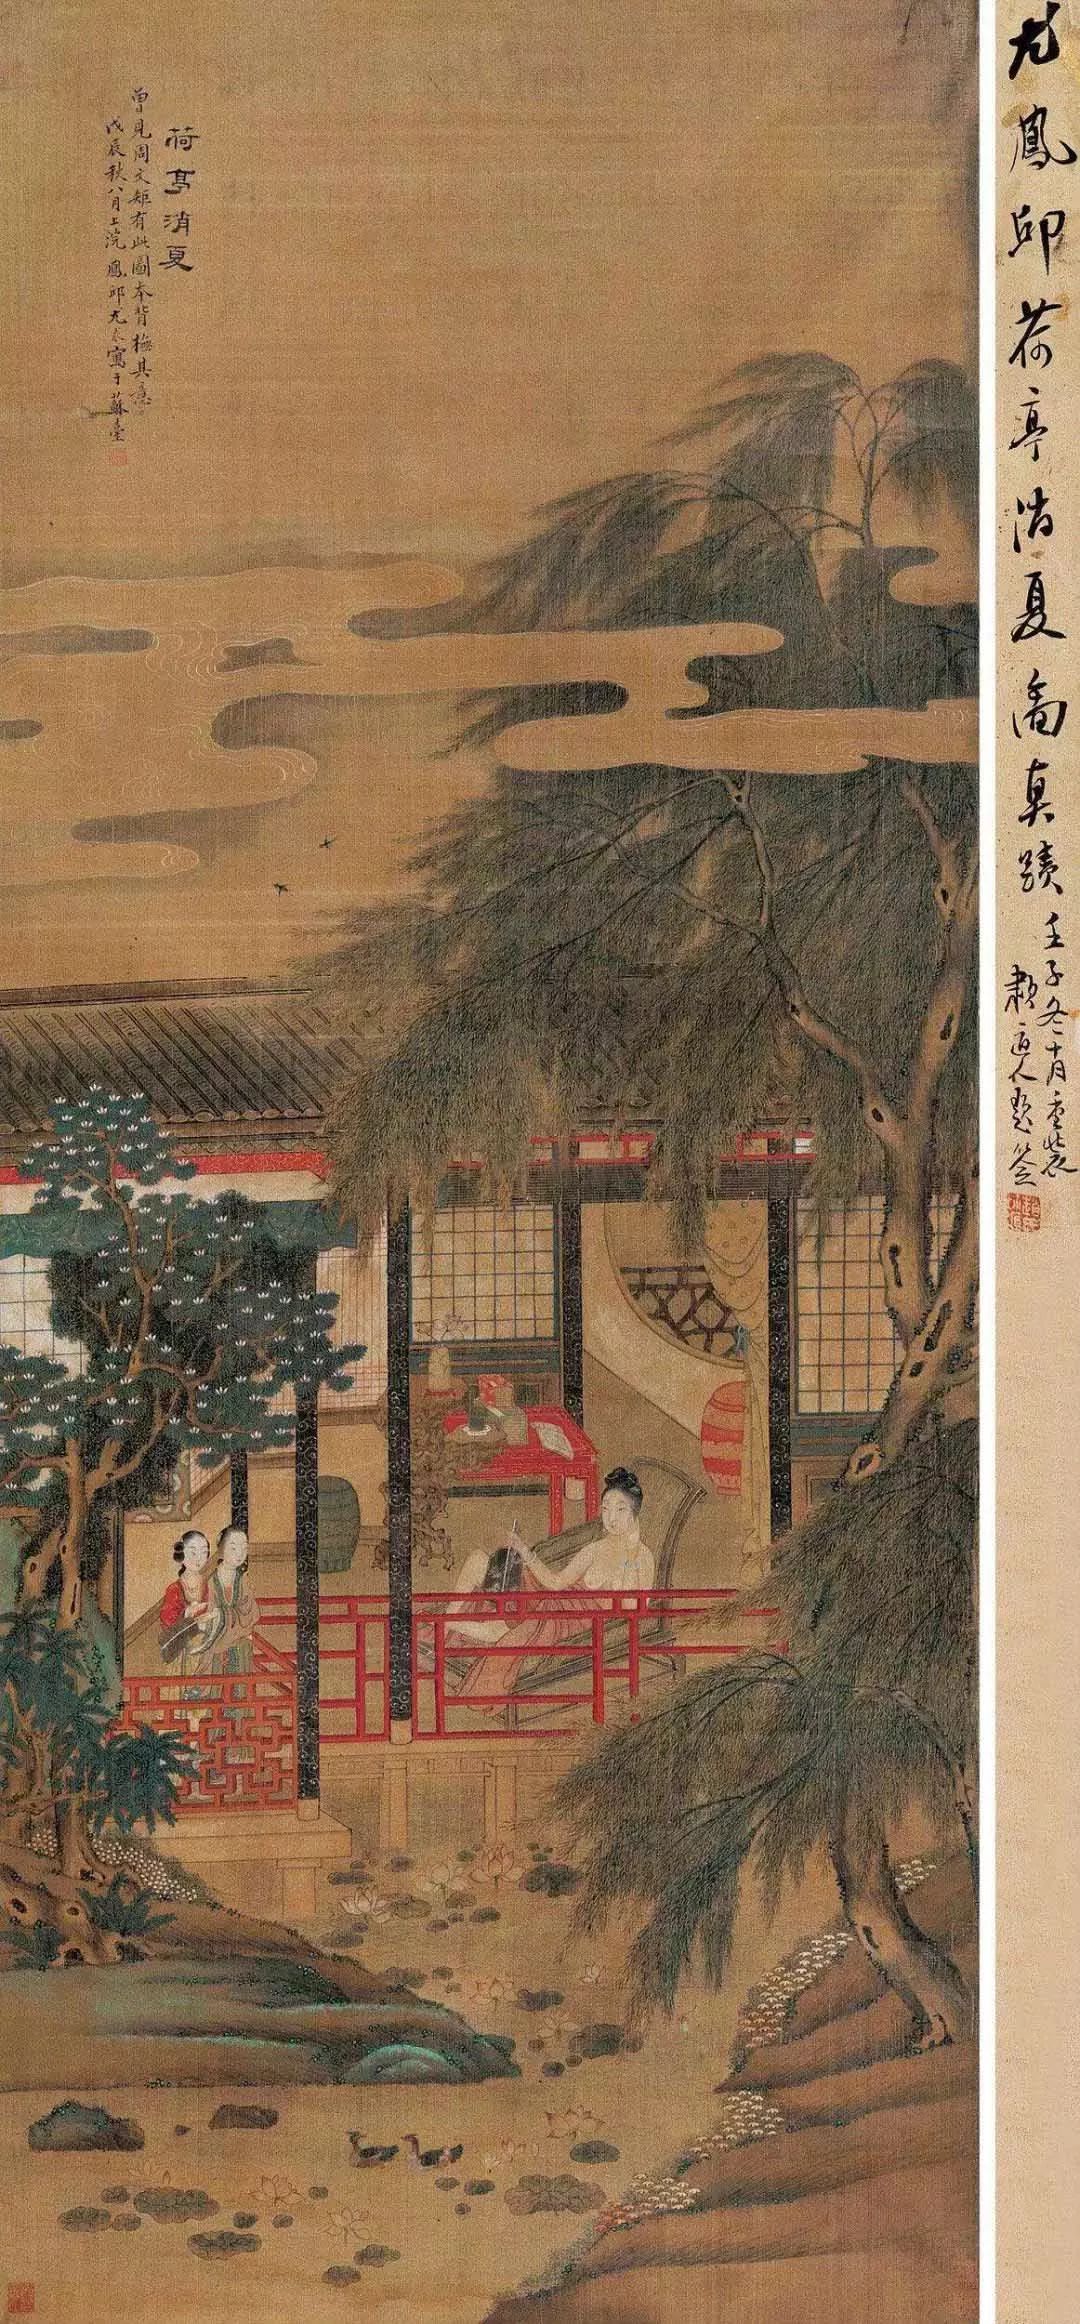 荷亭消夏
曾見周文矩有此圖本背橅其意
戊辰秋八月上浣鳳邱尤求寫于蘇臺
尤鳳邱荷亭消夏圖真蹟
壬子冬十月重裝
道人題簽